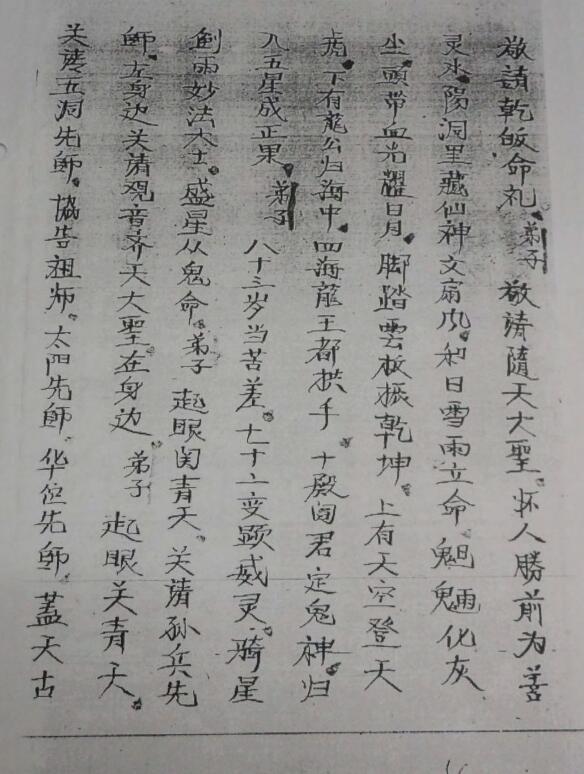 敬請乾皈命礼。弟子 敬請隨天大聖。怀人勝前为善
灵水。陽洞里藏仙神文扇风。和日雪雨立命。魑魎化灰
尘。頭带血光耀日月。脚踏雲板振乾坤。上有天空登天
虎。下有龍公归海中。四海龍王都拱手。十殿阎君定鬼神。归
入五星成正果。弟子 八十三岁当苦差。七十二变顕威灵。騎星
倒雨妙法大士。盛星从鬼命。弟子 起眼関青天。关請孙兵先
師。左身边关请观音齐天大聖在身边。弟子 起眼关青天。
关請五洞先師。協告祖师。太阳先師。华位先師。蓋天古